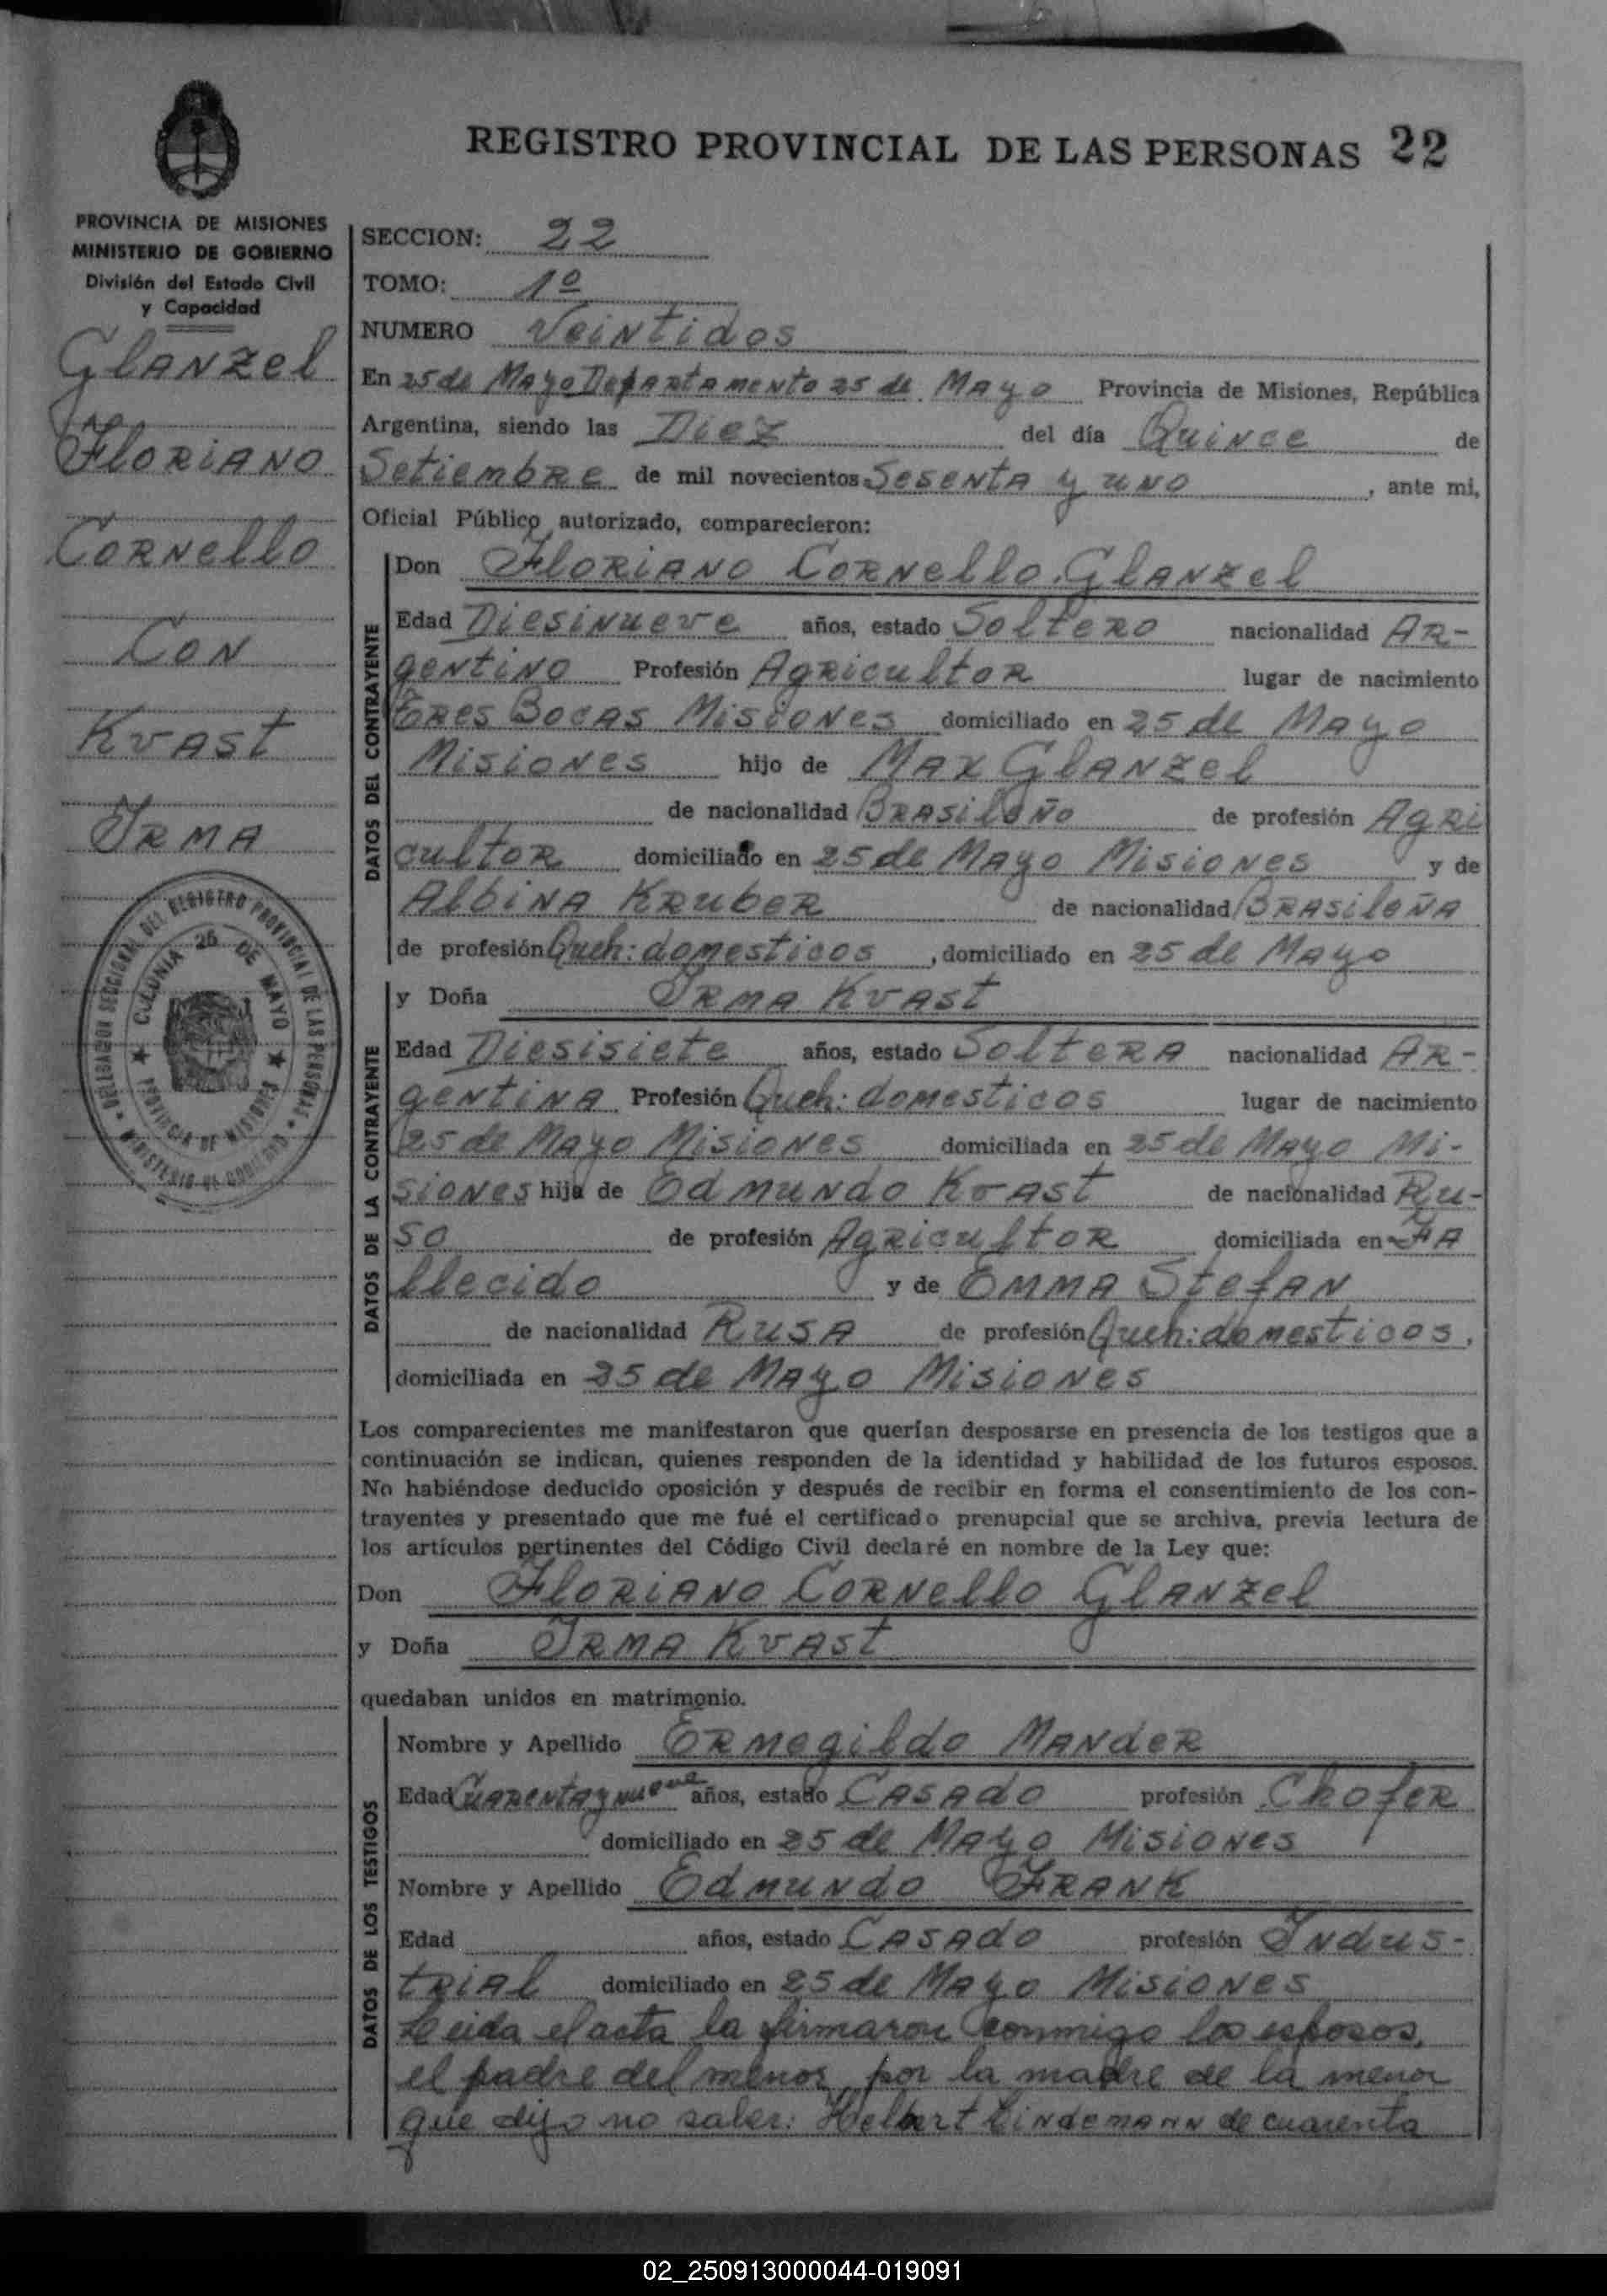 REGISTRO PROVINCIAL DE LAS PERSONAS 22
PROVINCIA DE MISIONES
MINISTERIO DE GOBIERNO
División del Estado Civil
y Capacidad
Glanzel
Floriano
Cornello
Con
Kvast
Irma
DELEGACION SECCIONAL DEL REGISTRO PROVINCIAL DE LAS PERSONAS
MINISTERIO DE GOBIERNO
COLONIA 25 DE MAYO
PROVINCIA DE MISIONES
SECCION: 22
TOMO: 1º
NUMERO Veintidos
En 25 de Mayo Departamento 25 de Mayo Provincia de Misiones, República
Argentina, siendo las Diez del día Quince de
Setiembre de mil novecientos Sesenta y uno, ante mi,
Oficial Público autorizado, comparecieron:
DATOS DEL CONTRAYENTE
Don Floriano Cornello Glanzel
Edad Diesinueve años, estado Soltero nacionalidad Ar-
gentino Profesión Agricultor lugar de nacimiento
Tres Bocas Misiones domiciliado en 25 de Mayo
Misiones hijo de Max Glanzel
de nacionalidad Brasileño de profesión Agri
cultor domiciliado en 25 de Mayo Misiones y de
Albina Kruber de nacionalidad Brasileña
de profesión Queh: domesticos, domiciliado en 25 de Mayo
DATOS DE LA CONTRAYENTE
y Doña Irma Kvast
Edad Diesisiete años, estado Soltera nacionalidad Ar-
gentina Profesión Queh: domesticos lugar de nacimiento
25 de Mayo Misiones domiciliada en 25 de Mayo Mi-
siones hija de Edmundo Kvast de nacionalidad Ru-
so de profesión Agricultor domiciliada en Fa
llecido y de Emma Stefan
de nacionalidad Rusa de profesión Queh: domesticos,
domiciliada en 25 de Mayo Misiones
Los comparecientes me manifestaron que querían desposarse en presencia de los testigos que a
continuación se indican, quienes responden de la identidad y habilidad de los futuros esposos.
No habiéndose deducido oposición y después de recibir en forma el consentimiento de los con-
trayentes y presentado que me fué el certificado prenupcial que se archiva, previa lectura de
los artículos pertinentes del Código Civil declaré en nombre de la Ley que:
Don Floriano Cornello Glanzel
y Doña Irma Kvast
quedaban unidos en matrimonio.
DATOS DE LOS TESTIGOS
Nombre y Apellido Ermegildo Mander
Edad Cuarenta y nueve años, estado Casado profesión Chofer
domiciliado en 25 de Mayo Misiones
Nombre y Apellido Edmundo Frank
Edad años, estado Casado profesión Indus-
trial domiciliado en 25 de Mayo Misiones
Leida el acta la firmaron conmigo los esposos,
el padre del menor, por la madre de la menor
que dijo no saber: Helbert Lindemann de cuarenta
02_250913000044-019091